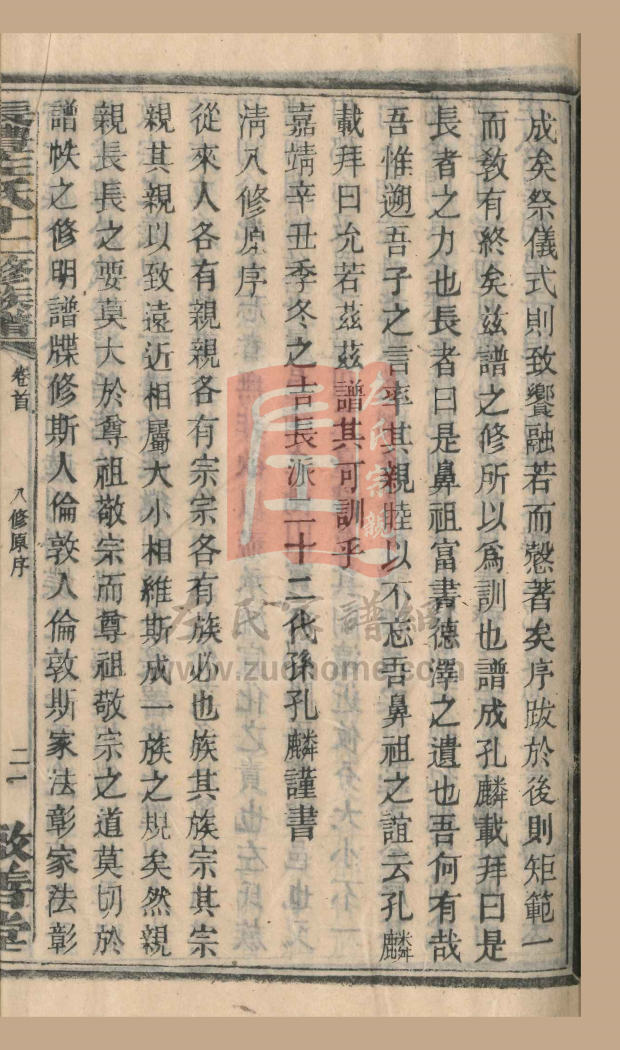 成矣祭儀式則致饗融若而愨著矣序跋於後則矩範一
而敎有終矣兹譜之修所以爲訓也譜成孔麟載拜曰是
長者之力也長者曰是鼻祖富書德澤之遺也吾何有哉
吾惟遡吾子之言率其親睦以不忘吾鼻祖之誼云孔麟
載拜曰允若茲茲譜其可訓乎
嘉靖辛丑季冬之吉長派二十二代孫孔麟謹書
淸八修原序
從來人各有親親各有宗宗各有族必也族其族宗其宗
親其親以致遠近相屬大小相維斯成一族之規矣然親
親長長之要莫大於尊祖敬宗而尊祖敬宗之道莫切於
譜帙之修明譜牒修斯人倫敦人倫敦斯家法彰家法彰
長澧左氏十二修族譜
卷首
八修原序
二一
敦善堂
左氏宗親
左氏 譜網
www.zuohome.com